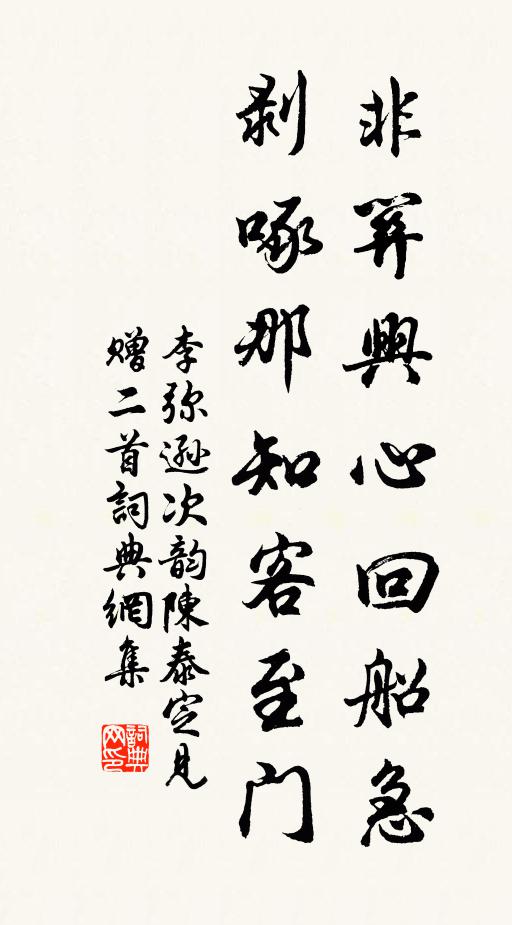 非關興心回船急
剥啄那知客至门
李弥遜次韵陳泰定見
贈二首詞典網集
詞典网印